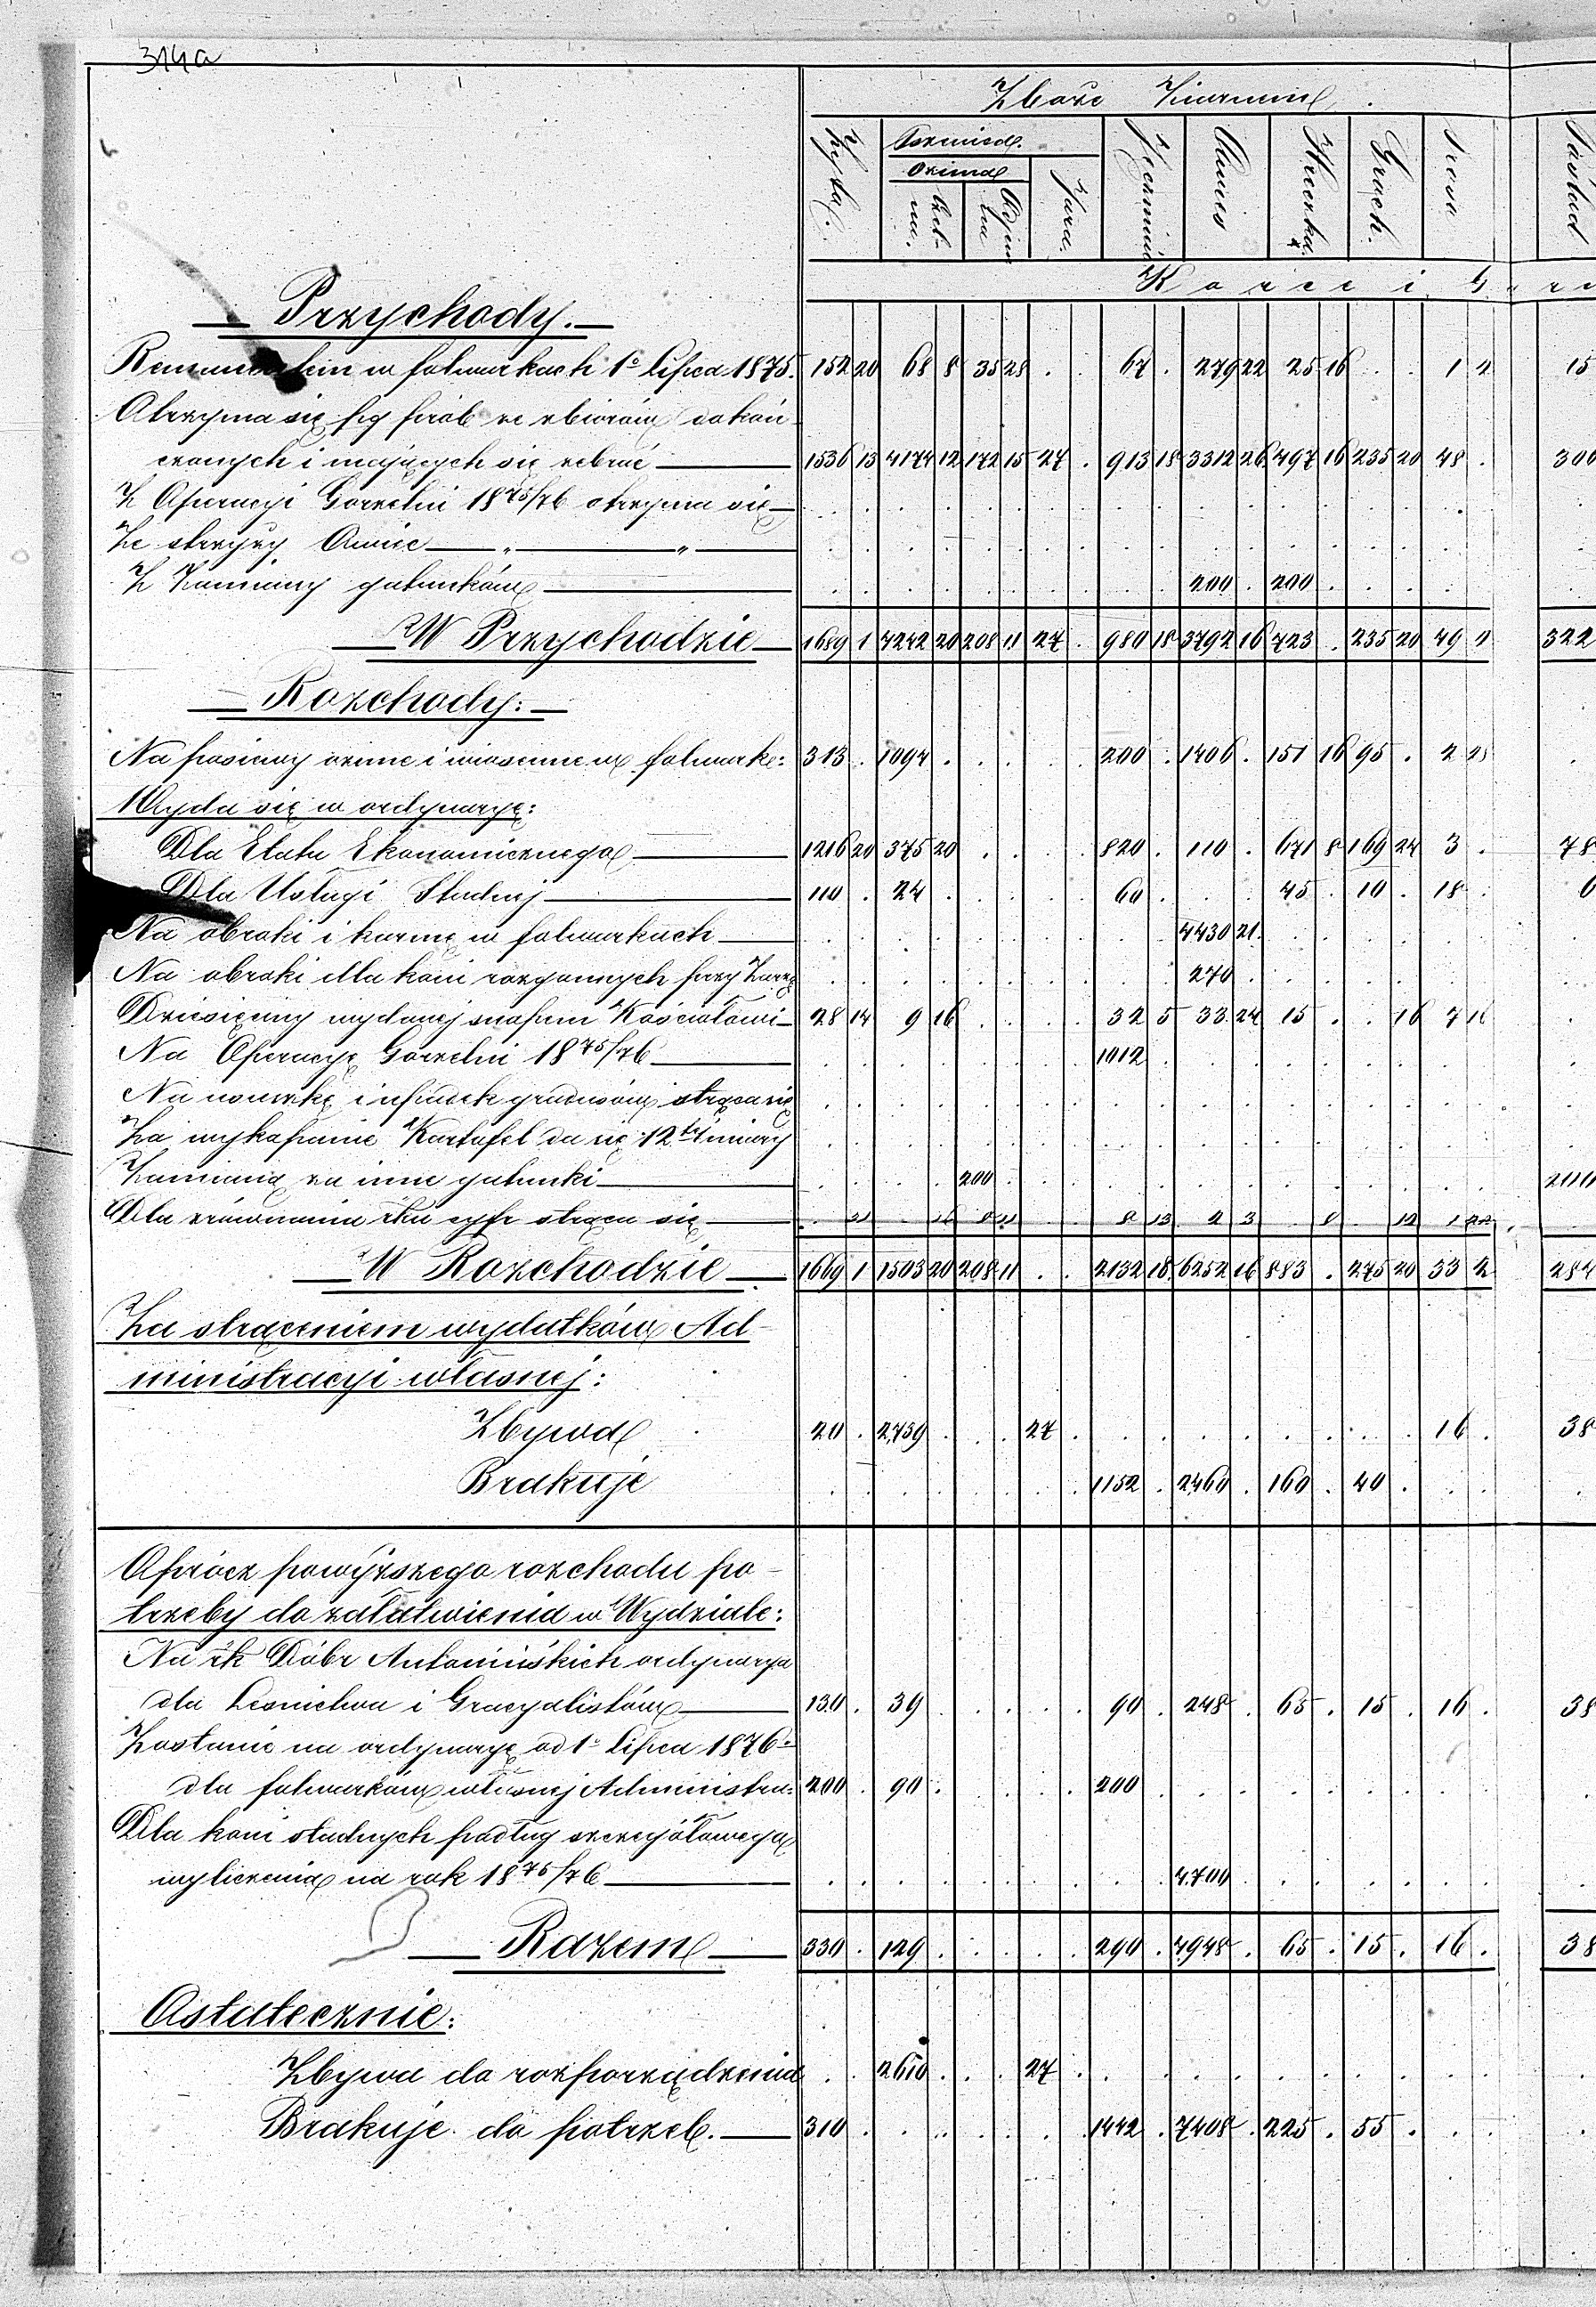 314a
Zboże Ziarnem
Żyta. Pszenica. Ozima Jara. Jęczmień Owies Hreczka Groch. Prosa
Kor ce i G
Przychody.
w folwarkach 1° Lipca 1875. 152 20 68 8 35 28 . . 67 . 279 22 25 16 . . 1 2 15
Otrzyma się pg prób ze zbiorów dokoń
czonych i mających się zebrać 1536 13 4174 12 172 15 27 . 913 18 3312 26 497 16 235 20 48 . 306
Z Operacyi Gorzelni 1875/76 otrzyma się
Ze strzyży Owiec " "
Z Zamiany gatunków 200 . 200 .
W Przychodzie 1689 1 4242 20 208 11 27 . 980 18 3792 16 723 . 235 20 49 2 322
Rozchody:
Na posiewy ozime i wiosenne w folwark: 313 . 1094 . . . . . 200 . 1406 . 151 16 95 . 2 28
Wyda się w ordynaryę:
Dla Etatu Ekonomicznego 1216 20 375 20 . . . . 820 . 110 . 671 8 169 24 3 . 78
Dla Usługi Stadnej 110 . 24 . . . . . 60 . . . 45 . 10 . 18 . 6
Na obroki i karmę w folwarkach 4430 21
Na obroki dla koni rozgonnych przy Zarzą 270
Dziesięciny wydanej snopem Kościołowi 28 14 9 16 . . . . 32 5 33 24 15 . . 16 7 16
Na Operacyę Gorzelni 1875/76 1012
Na ususzkę i upadek gradusów strąca się
Za wykopanie Kartofel da się 12tej miary
Zamiana na inne gatunki 200
Dla zrównania rku cyfr strąca się . 21 . 16 8 11 . . 8 13 2 3 . 8 . 12 1 22
W Rozchodzie 1669 1 1503 20 208 11 . . 2132 18 6252 16 883 . 275 20 33 2 284
Za strąceniem wydatków Ad-
ministracyi własnej:
Zbywa 20 . 2739 . . . 27 . . . . . . . . . 16 . 38
Brakuje 1152 . 2460 . 160 . 40 .
Oprócz powyższego rozchodu po-
trzeby do załatwienia w Wydziale:
Na rk Dóbr Antonińskich ordynarya
dla Leśnictwa i Gracyalistów 130 . 39 . . . . . 90 . 248 . 65 . 15 . 16 . 38
Zostanie na ordynaryę od 1° Lipca 1876°
dla folwarków własnej Administra: 200 . 90 . . . . . 200
Dla koni stadnych podług szczegółowego
wyliczenia na rok 1875/76 4700
Razem 330 . 129 . . . . . 290 . 4948 . 65 . 15 . 16 . 38
Ostatecznie:
Zbywa do rozporządzenia . . 2610 . . . 27 .
Brakuje do potrzeb. 310 . . . . . . . 1442 . 7408 . 225 . 55 .